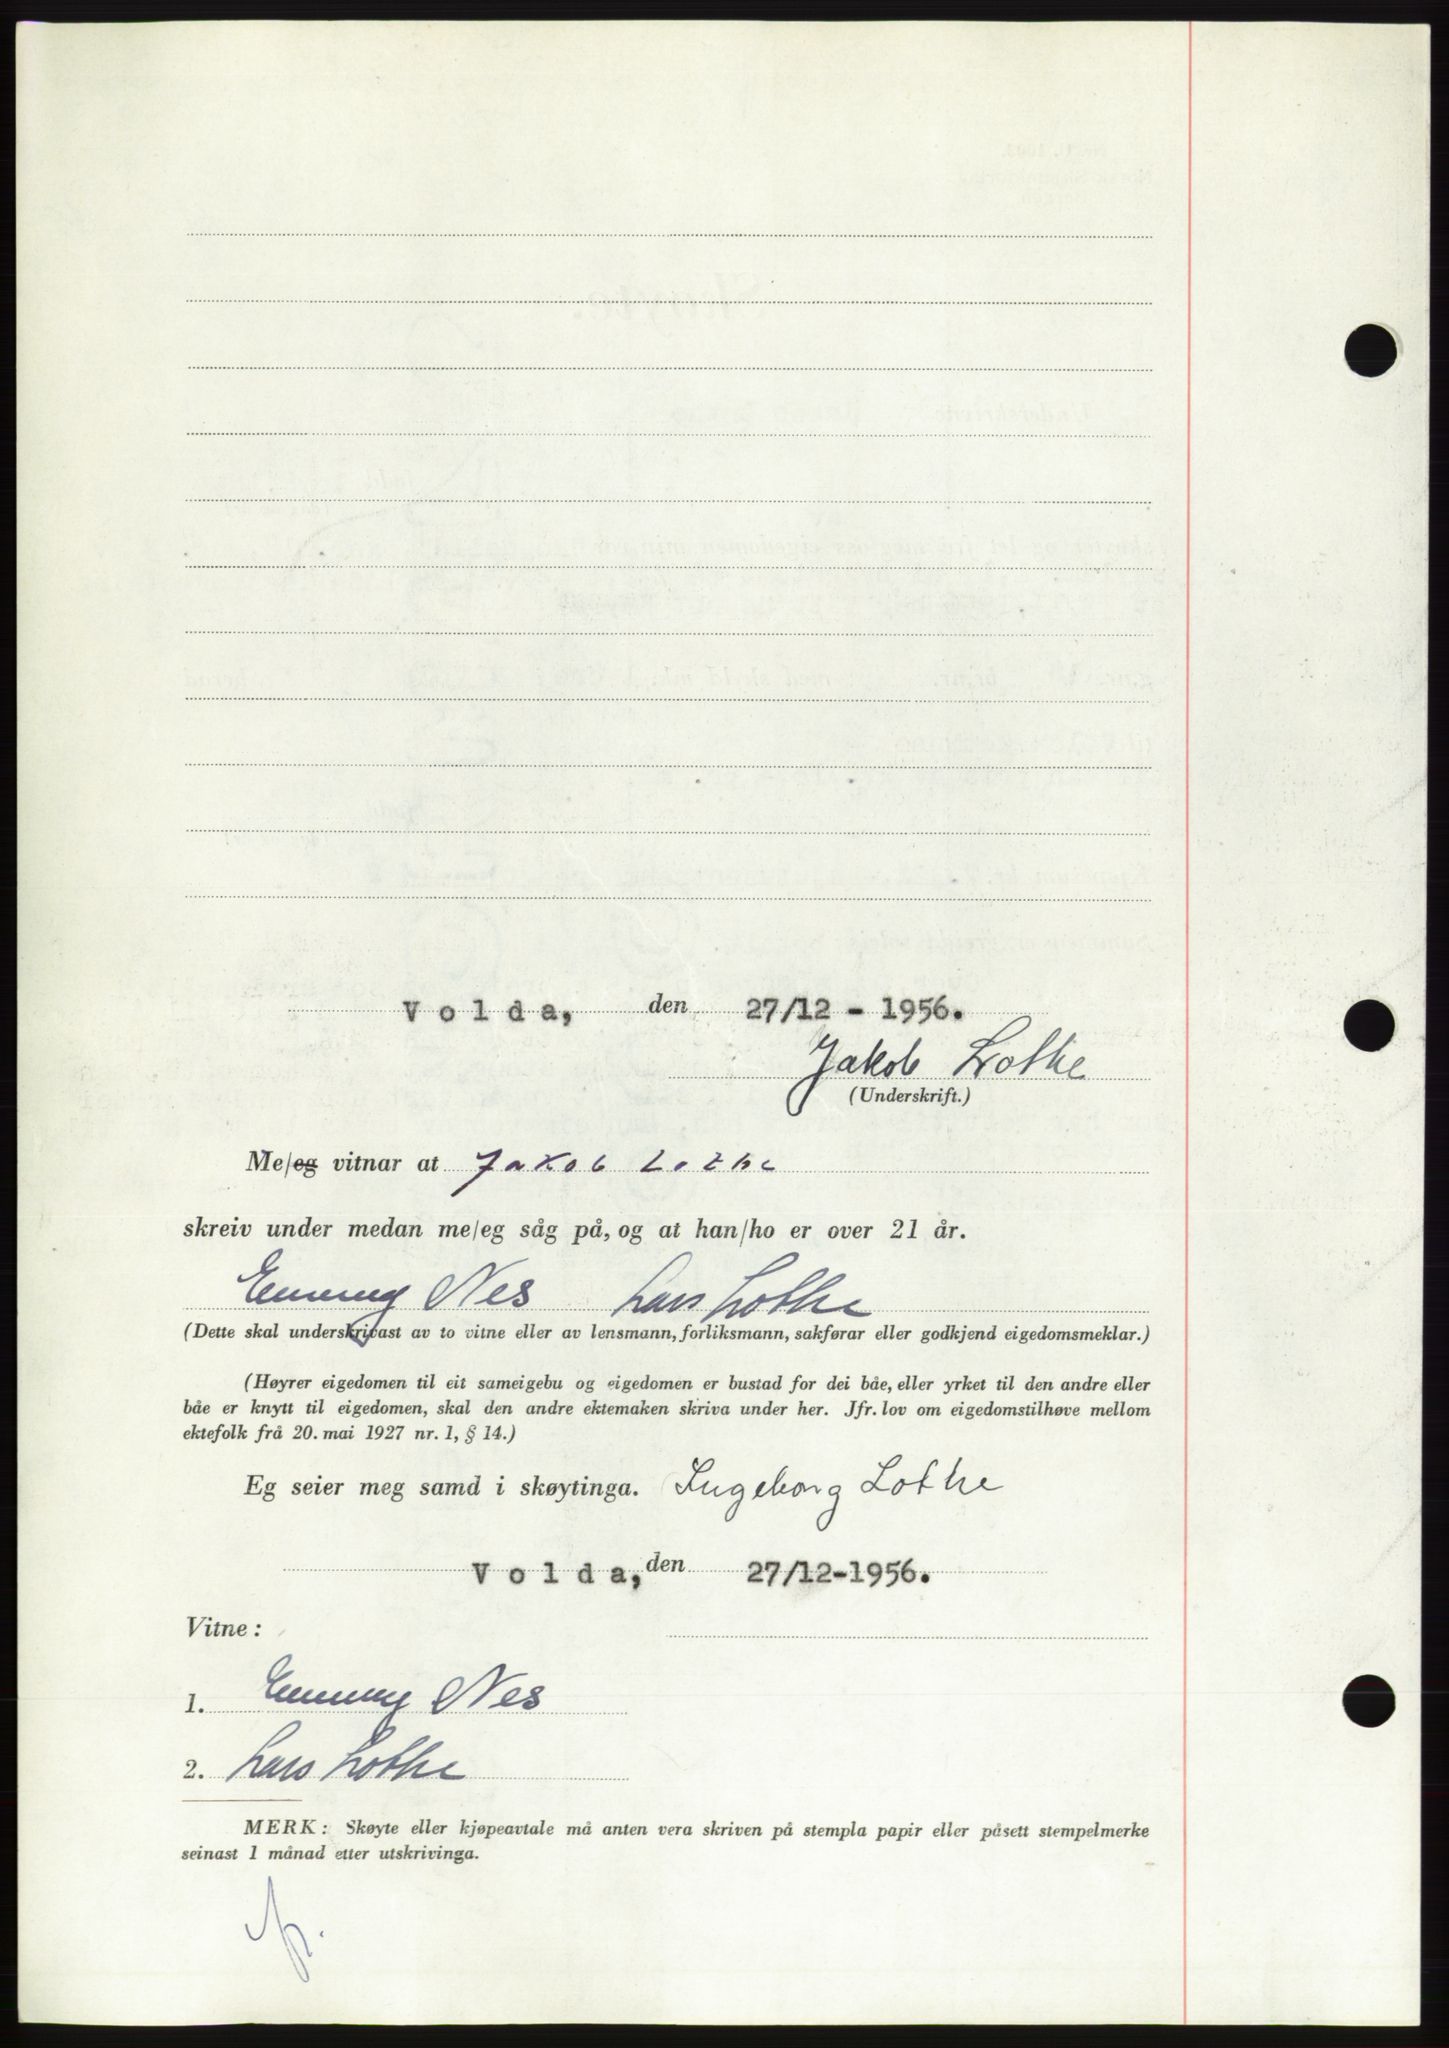 Volda, den 27/12 - 1956.
Jakob Lothe
(Underskrift.)
Me/eg vitnar at Jakob Lothe
skreiv under medan me/eg såg på, og at han/ho er over 21 år.
Emmy Nes Lars Lothe
(Dette skal underskrivast av to vitne eller av lensmann, forliksmann, sakførar eller godkjend eigedomsmeklar.)
(Høyrer eigedomen til eit sameigebu og eigedomen er bustad for dei båe, eller yrket til den andre eller
båe er knytt til eigedomen, skal den andre ektemaken skriva under her. Jfr. lov om eigedomstilhøve mellom
ektefolk frå 20. mai 1927 nr. 1, § 14.)
Eg seier meg samd i skøytinga. Ingeborg Lothe
Volda, den 27/12-1956.
Vitne:
1. Emmy Nes
2. Lars Lothe
MERK: Skøyte eller kjøpeavtale må anten vera skriven på stempla papir eller påsett stempelmerke
seinast 1 månad etter utskrivinga.